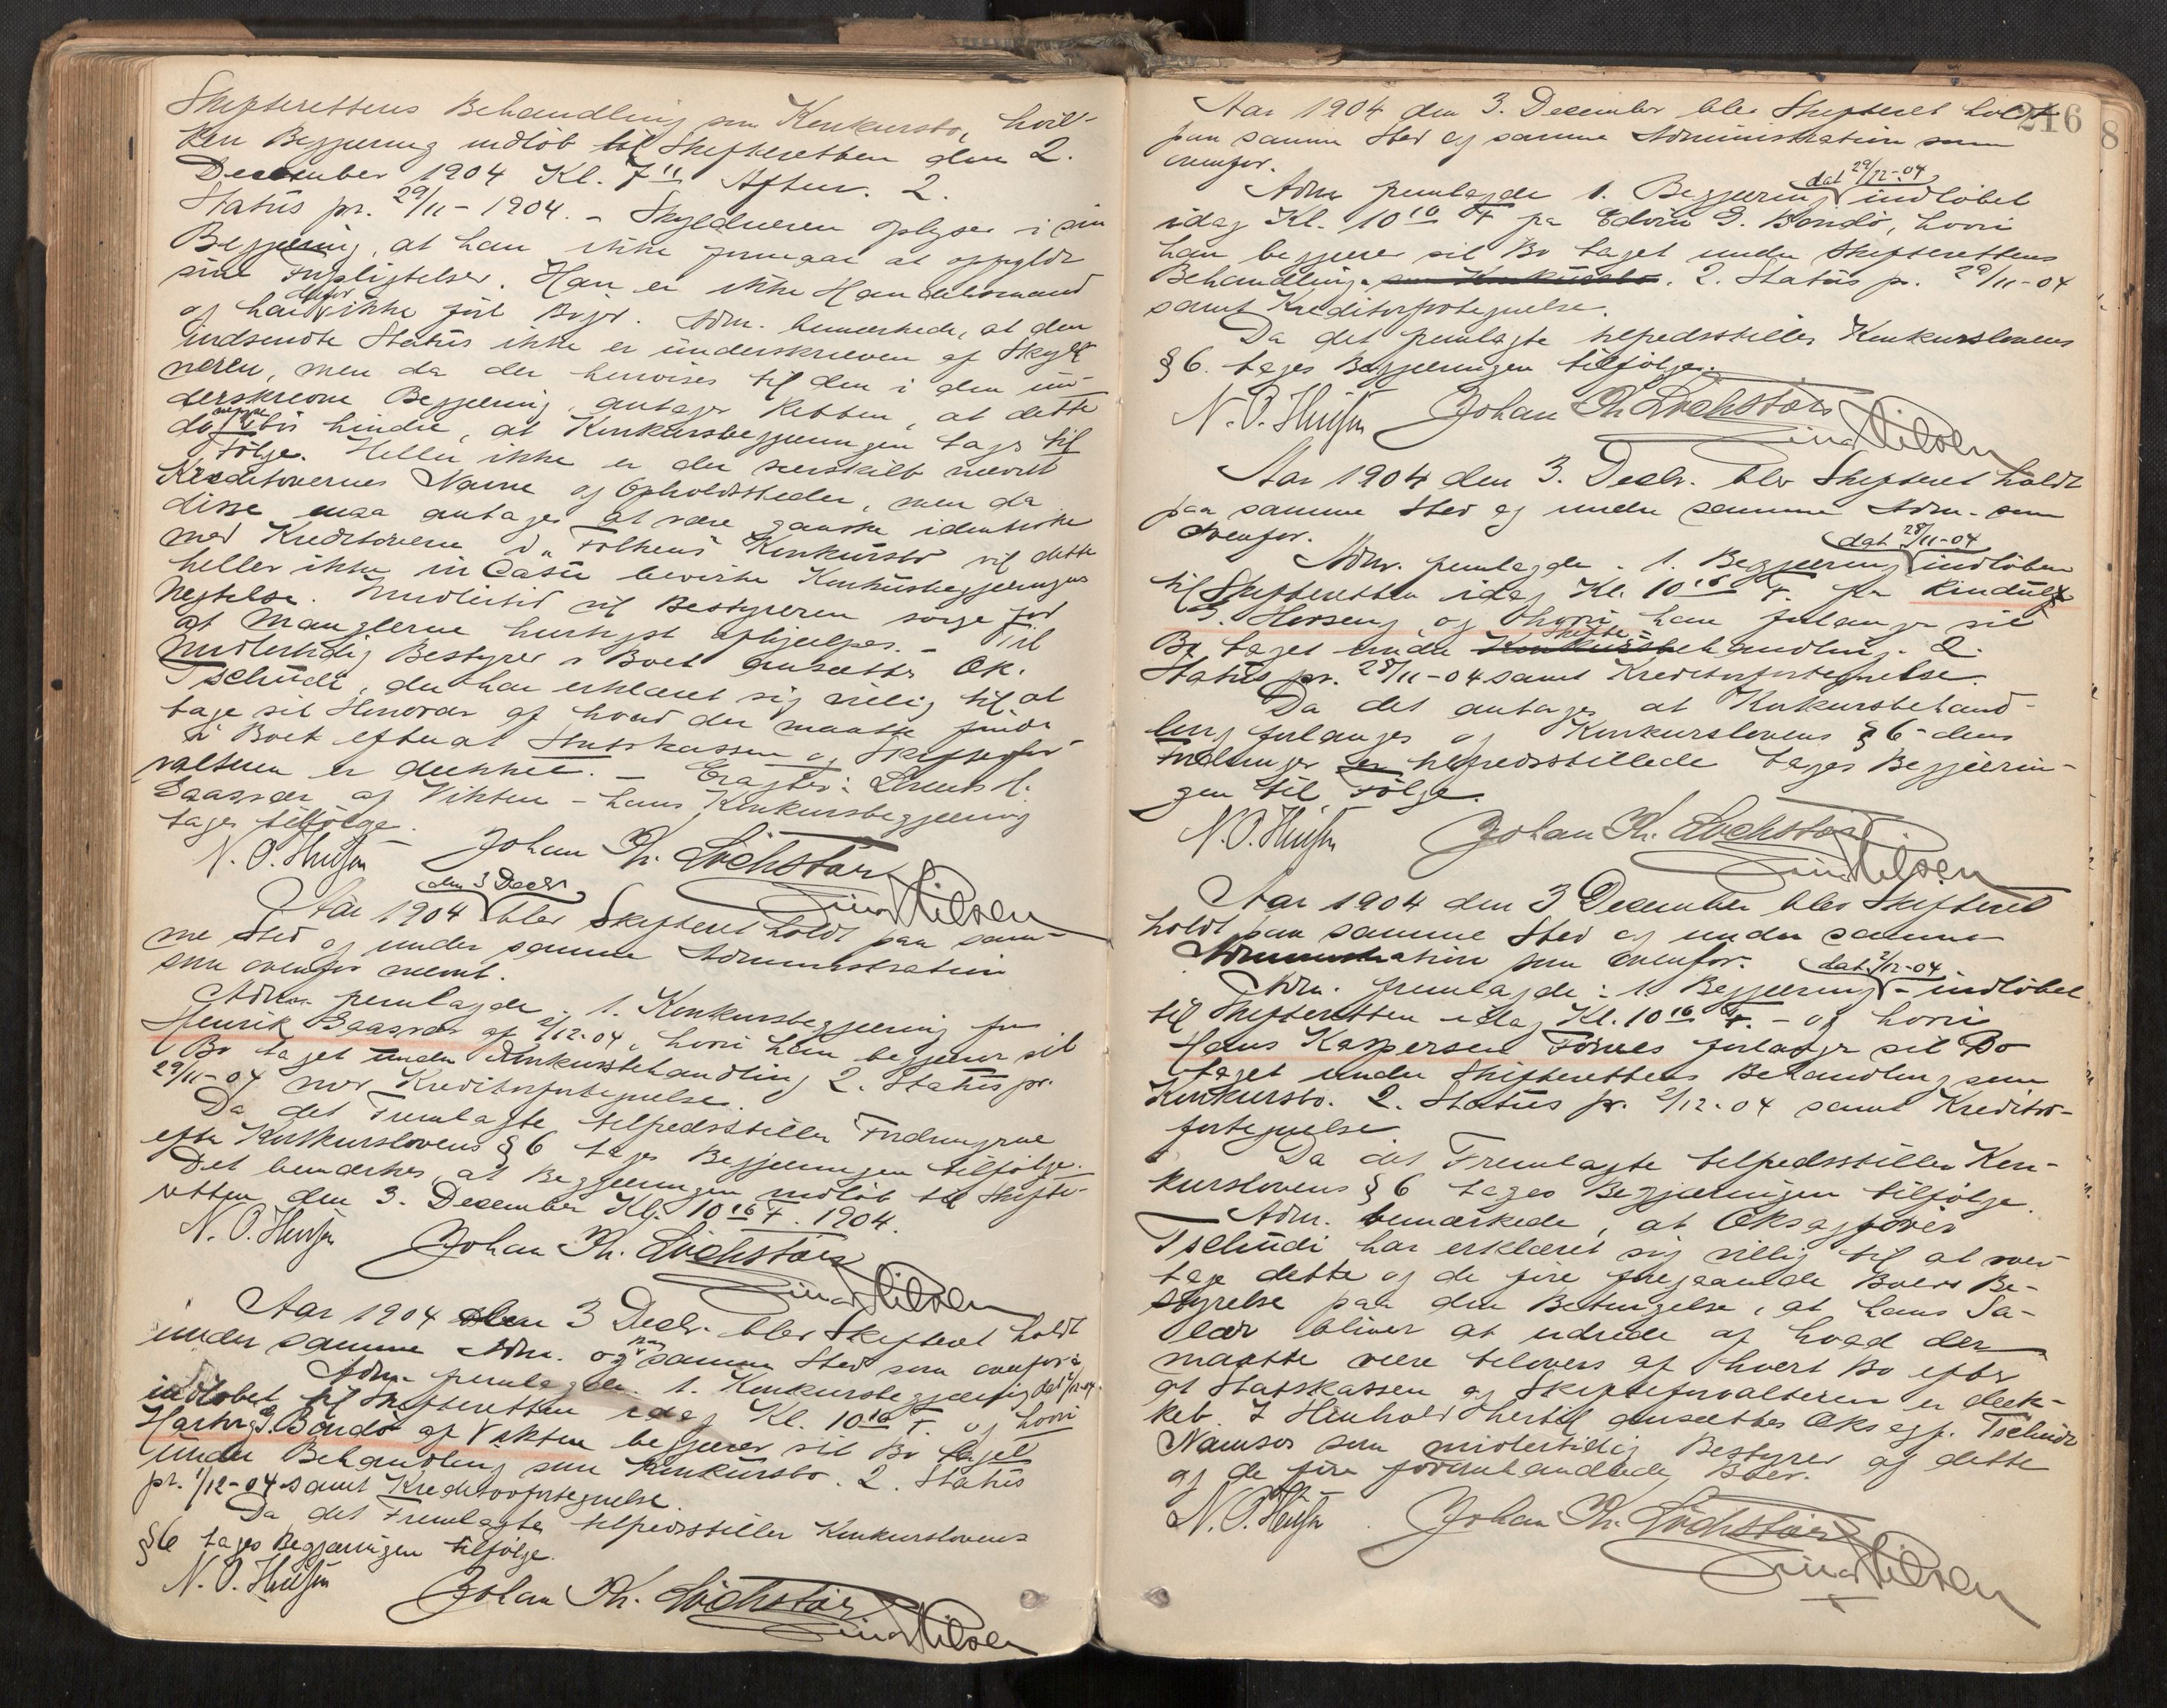 Skifterettens Behandling som Konkursbo, hvil-
ken Begjæring indløb til Skifteretten den 2.
December 1904 Kl. 7 Efterm. 2.
Status pr. 29/11-1904. - Skyldneren oplyser i sin
Begjæring, at han ikke formaar at opfylde
sine Forpligtelser. Han er ikke Handelsmand
og har derfor ikke ført Bøger. Adm. bemærkede, at den
indsendte Status ikke er underskreven af Skyld-
neren, men da der henvises til den i den un-
derskrevne Begjæring, antager Retten, at dette
ikke bør hindre, at Konkursbegjæringen tages til
Følge. Heller ikke er der særskilt nævnt
Kreditorernes Navne og Opholdssteder, men da
disse maa antages at være ganske identiske
med Kreditorerne i "Folkens" Konkursbo vil dette
heller ikke in Casu bevirke Konkursbegjæringens
Negtelse. Imidlertid vil Bestyreren sørge for
at Manglerne hurtigst afhjælpes. - Til
midlertidig Bestyrer i Boet ansættes OK.
Tschudi, der har erklæret sig villig til at
tage sit Honorar af hvad der maatte findes
i Boet efterat Statskassen og Skiftefor-
valteren er dækket. - Eragtet:
Gaasvær af Vikten - hans Konkursbegjæring
tages tilfølge.
N. O. Johan Kr. Løchstør
Einar Nilsen
Aar 1904 den 3 Decbr. blev Skifteret holdt paa sam-
me Sted og under samme Administration
som ovenfor nævnt.
Adm. fremlagde: 1. Konkursbegjæring fra
Henrik Gaasvær af 2/12-04, hvori han begjærer sit
Bo taget under Konkursbehandling 2. Status pr.
29/11-04 med Kreditorfortegnelse.
Da det Fremlagte tilfredsstiller Fordringerne
efter Konkurslovens § 6 tages Begjæringen tilfølge.
Det bemærkes, at Begjæringen indløb til Skifte-
retten den 3. December Kl. 10 16 F. 1904.
N. O. Johan Kr. Løchstør
Einar Nilsen
Aar 1904 den 3 Decbr. blev Skifteret holdt
under samme Adm. og paa samme Sted som ovenfor.
Adm. fremlagde. 1. Konkursbegjæring dat 2/12-04
indløbet til Skifteretten idag Kl. 10 16 F. og hvori
Hartvig G. Bondø af Vikten begjærer sit Bo taget
under Behandling som Konkursbo. 2. Status
pr. 1/12-04 samt Kreditorfortegnelse.
Da det Fremlagte tilfredsstiller Konkurslovens
§ 6 tages Begjæringen tilfølge.
N. O. Johan Kr. Løchstør
Einar Nilsen
216
8
Aar 1904 den 3. December blev Skifteret holdt
paa samme Sted og samme Administration som
ovenfor.
Adm. fremlagde 1. Begjæring dat 29/12-04 indløbet
idag Kl. 10 16 F fra Edvin G. Bondø, hvori
han begjærer sit Bo taget under Skifterettens
Behandling som Konkursbo. 2. Status pr. 29/11-04
samt Kreditorfortegnelse.
Da det fremlagte tilfredsstiller Konkurslovens
§ 6. tages Begjæringen tilfølge.
N. O. Johan Kr. Løchstør
Einar Nilsen
Aar 1904 den 3. Decbr. blev Skifteret holdt
paa samme Sted og under samme Adm. som
ovenfor.
Adm. fremlagde. 1. Begjæring dat 28/11-04 indløben
til Skifteretten idag Kl. 10 16 F. fra Rindulf
G. Horseng og hvori han forlanger sit
Bo taget under Skifte-Konkursbehandling. 2.
Status pr. 28/11-04 samt Kreditorfortegnelse.
Da det antages at Konkursbehand-
ling forlanges og Konkurslovens § 6 - dens
Fordringer er tilfredsstillede tages Begjærin-
gen til Følge.
N. O. Johan Kr. Løchstør
Einar Nilsen
Aar 1904 den 3 December blev Skifteret
holdt paa samme Sted og under samme
Administration som ovenfor.
Adm. fremlagde: 1. Begjæring dat. 2/12-04 - indløbet
til Skifteretten idag Kl. 10 16 F. - og hvori
Hans Kaspersen Førnes forlanger sit Bo
taget under Skifterettens Behandling som
Konkursbo. 2. Status pr. 2/12-04 samt Kreditor-
fortegnelse.
Da det Fremlagte tilfredsstiller Kon-
kurslovens § 6 tages Begjæringen tilfølge.
Adm. bemærkede, at OKsagfører
Tschudi har erklæret sig villig til at over-
tage dette og de fire foregaaende Boers Be-
styrelse paa den Betingelse, at hans Sa-
lær bliver at udrede af hvad der
maatte være tilovers af hvert Bo efter
at Statskassen og Skifteforvalteren er dæk-
ket. I Henhold hertil ansættes OKsagf. Tschudi
Namsos som midlertidig Bestyrer af dette
og de fire forannævnte Boer.
N. O. Johan Kr. Løchstør
Einar Nilsen